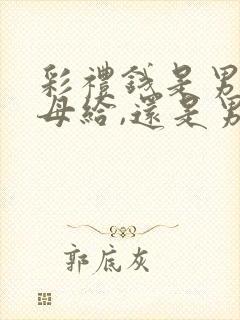 彩禮錢是男
母給,還是男
郭底灰